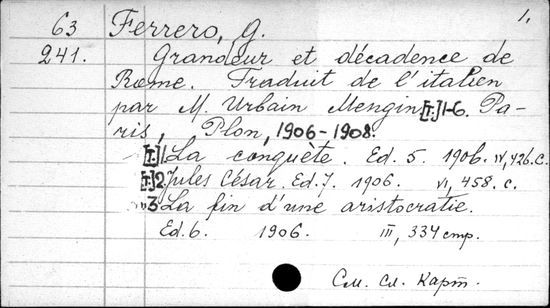 63 Ferrero, G. 1,
241. Grandeur et décadence de
Rome. Traduit de l'italien
par M. Urbain Mengin. [T.] 1-6. Pa-
ris, Plon, 1906-1908.
[T.] 1. La conquête. Ed. 5. 1906. IV, 426 c.
[T.] 2. Jules César. Ed. 7. 1906. VI, 458. c.
3 La fin d'une aristocratie.
Ed. 6. 1906. III, 334 стр.
См. сл. карт.